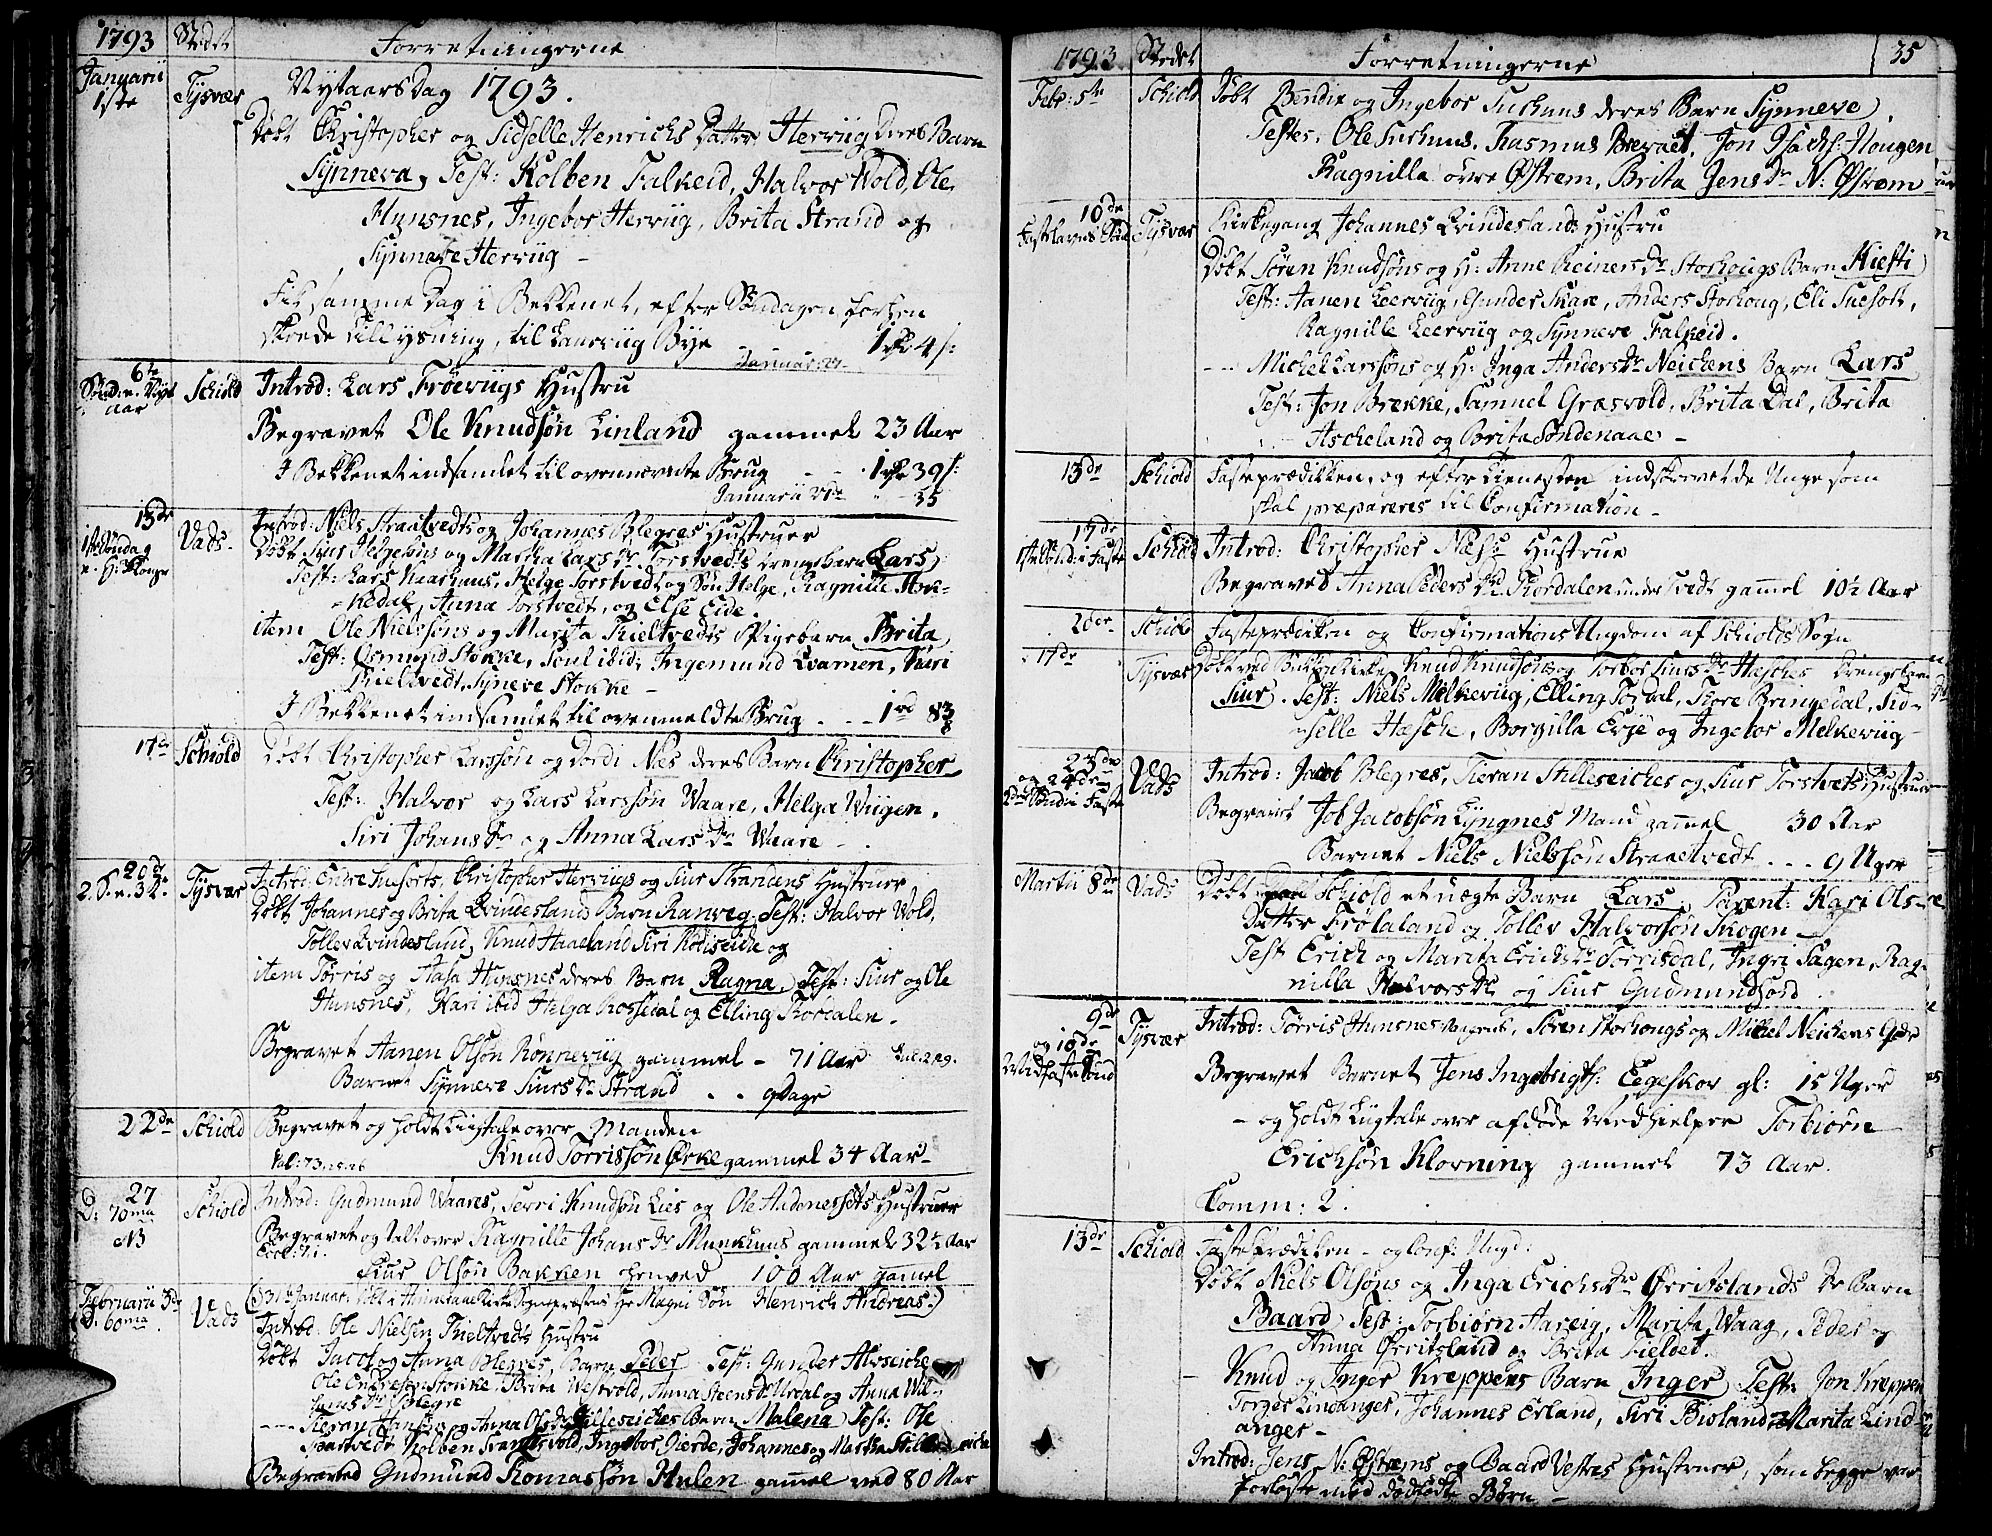 1793 Stedet Forretningerne
Januarii 1ste Tysvær Nytaarsdag 1793.
Døbt Christopher og Sidselle Henrichs Datter Herviig deres Barn
Synneva, Test: Kolben Falkeid, Halvor Wold, Ole
Hunsnes, Ingebor Herviig, Brita Strand og
Synneve Herviig
samme Dag i Bekkenet, efter Søndagen
skeede Tillysning, til Bye 1 rd 4 s:
6te Sønd. n. Nyt aar Schiold Introd: Lars Frøeviigs Hustru
Begravet Ole Knudsøn Linland gammel 23 Aar
I Bekkenet indsamlet til ovennevnte Brug - - 1 rd 39 s:
Januarii
13de 1ste Søndag Vads. Introd: Niels Straatvedts og Johannes Blegres Hustruer
Døbt Siur Helgesøns og Martha Lars Dr Torstvedts Drengebarn Lars
Test: Lars Kaarhuus, Helge Torstvedt og Søn Helge, Ragnille
kedal, Anna Torstvedt, og Else Eide.
item Ole Nielssøns og Marita Kieltvedts Pigebarn Brita,
Test: Osmund Stokke, ibid, Ingemund Kvamen, Kari
Kieltvedt, Syneve Stokke
I Bekkenet indsamlet til ovenmeldte Brug . . . 1 rd 83
17de Schiold Døbt Christopher Larssøn og Dordi Næs deres Barn Christopher
Test: Halvor og Lars Larssøn Waare, Helga Wiigen,
Siri Johans Dr og Anna Lars Dr Waare
20de 2. S. n. 3 K. Tysvær Introd: Endre Christopher Herviigs og Siur Strandens Hustruer
Døbt Johannes og Brita Qvindesland Barn Ranveg. Test: Halvor Wold,
Tollev Qvindesland, Knud Haaeland Siri og
item Torris og Aasa Hunsnes deres Barn Ragna, Test: Siur og Ole
Hunsnes, Kari ibid Helga Rossedal og Elling Tordalen.
Begravet Aanen Olsøn Rønneviig gammel - 71 Aar
Barnet Synneve Siurs Dr Strand . . 9 Dage
22de Schiold Begravet og holdt Liigtale over Manden
Knud Torrissøn Ørke gammel 34 Aar
27 D: 70ma Schiold Introd: Gudmund Waares, Knudsøn Lies og Ole Hustruer
NB Begravet og talt over Ragnille Johans Dr Munkuus gammel 32½ Aar
Siur Olsøn Bakken henved 100 Aar gamel
Februarii 3de 60ma Vads (31te Januar. Døbt i Hr Magni Søn Henrich Andreas.)
Introd: Ole Nielsen Kieltvedts Hustru
Døbt Jacob og Anna Blegres Barn Peder Test: Gunder
Ole Endresøn Stokke, Brita Westvold, Anna og Anna
Blegre
- - - og Anna Ols Dr Stilleseiches Barn Malena Test: Ole
Kolben Ingebor Gierde, Johannes og Martha
Begraved Gudmund Thomassøn Hulen gamel ved 80 Aar
1793 Stedet Forretningerne 35
Febr: 5te Schiold Døbt Bendix og Ingebor Surhuus deres Barn Synneve
Testes, Ole Surhuus, Rasmus Jon Isachs: Hougen
Ragnilla øvre Østrem, Brita Jens Dr N: Østrem
10de Fastelavns Sønd Tysvær Kirkegang Johannes Qvindeslands Hustru
Døbt Søren Knudsøns og H: Anne Reiners Dr Storhougs Barn Kiesti
Test: Aanen Leerviig, Gunder Skare, Anders Storhoug, Eli
Ragnille Leerviig og Synneve Falkeid.
- - - Michel Larssøns og H: Inga Anders Dr Neichens Barn Lars
Test: Jon Brekke, Samuel Græsvold, Brita Dal, Brita
Ascheland og Brita Søndenaae -
13de Schiold Fasteprædikken, og efter Tienesten indskrevet de Unge som
skal præpareres til Confirmation -
17de 1ste Sønd: i Faste Schiold Introd: Christopher Næs Hustrue
Begraved Anna Peders Dr Tordalen under Tvedt gamel 10½ Aar
20de Schiold Fasteprædiken og Confirmations Ungdom af Schiolds Sogn
17de Tysvær Døbt ved Knud Knudsøns og Torbor Siurs Dr Hesches Drengebarn
Siur. Test: Niels Melkeviig, Elling Tordal, Tore Bringedal, Sid-
selle Hesche, Borgilla Erje og Ingebor Melkeviig
23de og 24de 2den Sønd i Faste Vads Introd: Jacob Blegres, Kieran Stilleseiches og Siur Torstvets Hustruer
Begravet Job Jacobsøn Lyngnes Mand gamel 30 Aar
Barnet Niels Nielssøn Straaetvedt . . . 9 Uger
Martii 8de Vads Døbt Schiold et uægte Barn Lars. Parent: Kari Ols-
Datter Frølaland og Tollev Halvorsøn Skogen
Test Erich og Marita Erichs Dr Torrisdal, Ingri Sagen, Rag-
nilla Halvors Dr og Siur Gudmundsord
9de og 10de Midfaste Sønd Tysvær Introd: Torris Hunsnes Søren Storhougs og Michel Neichens
Begravet Barnet Jens Ingebrigts: Eegeskov gl: 15 Uger
- og holdt Liigtale over afdøde Medhielper Torbiørn
Erichsøn Klovning gammel 73 Aar.
Comm: 2.
13de Schiold Faste Prædiken - og Conf: Ungd:
Døbt Niels Olsøns og Inga Erichs Dr Øvritslands De Barn
Baard Test: Torbiørn Marita Waag, Peder og
Anna Øvritsland og Brita Fieldet.
- Knud og Inger Kreppens Barn Inger Test: Jon Kreppen
Torger Lindanger, Johannes Erland, Siri Bioland Marita Lind-
anger -
Introd: Jens N: Østrems og Baard Vestres Hustruer, som begge var
forløste med dødfødte Børn -